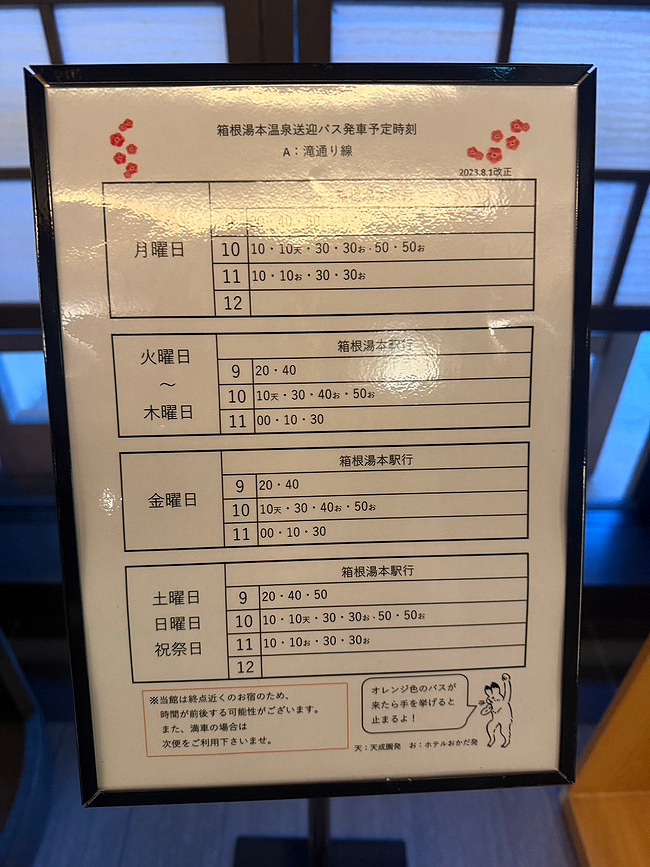 箱根湯本温泉送迎バス発車予定時刻
A：滝通り線
2023.8.1改正
月曜日
10 10・10天・30・30お・50・50お
11 10・10お・30・30お
12
火曜日
～
木曜日
箱根湯本駅行
9 20・40
10 10天・30・40お・50お
11 00・10・30
金曜日
箱根湯本駅行
9 20・40
10 10天・30・40お・50お
11 00・10・30
土曜日
日曜日
祝祭日
箱根湯本駅行
9 20・40・50
10 10・10天・30・30お・50・50お
11 10・10お・30・30お
12
※当館は終点近くのお宿のため、
時間が前後する可能性がございます。
また、満車の場合は
次便をご利用下さいませ。
オレンジ色のバスが
来たら手を挙げると
止まるよ！
天：天成園発 お：ホテルおかだ発